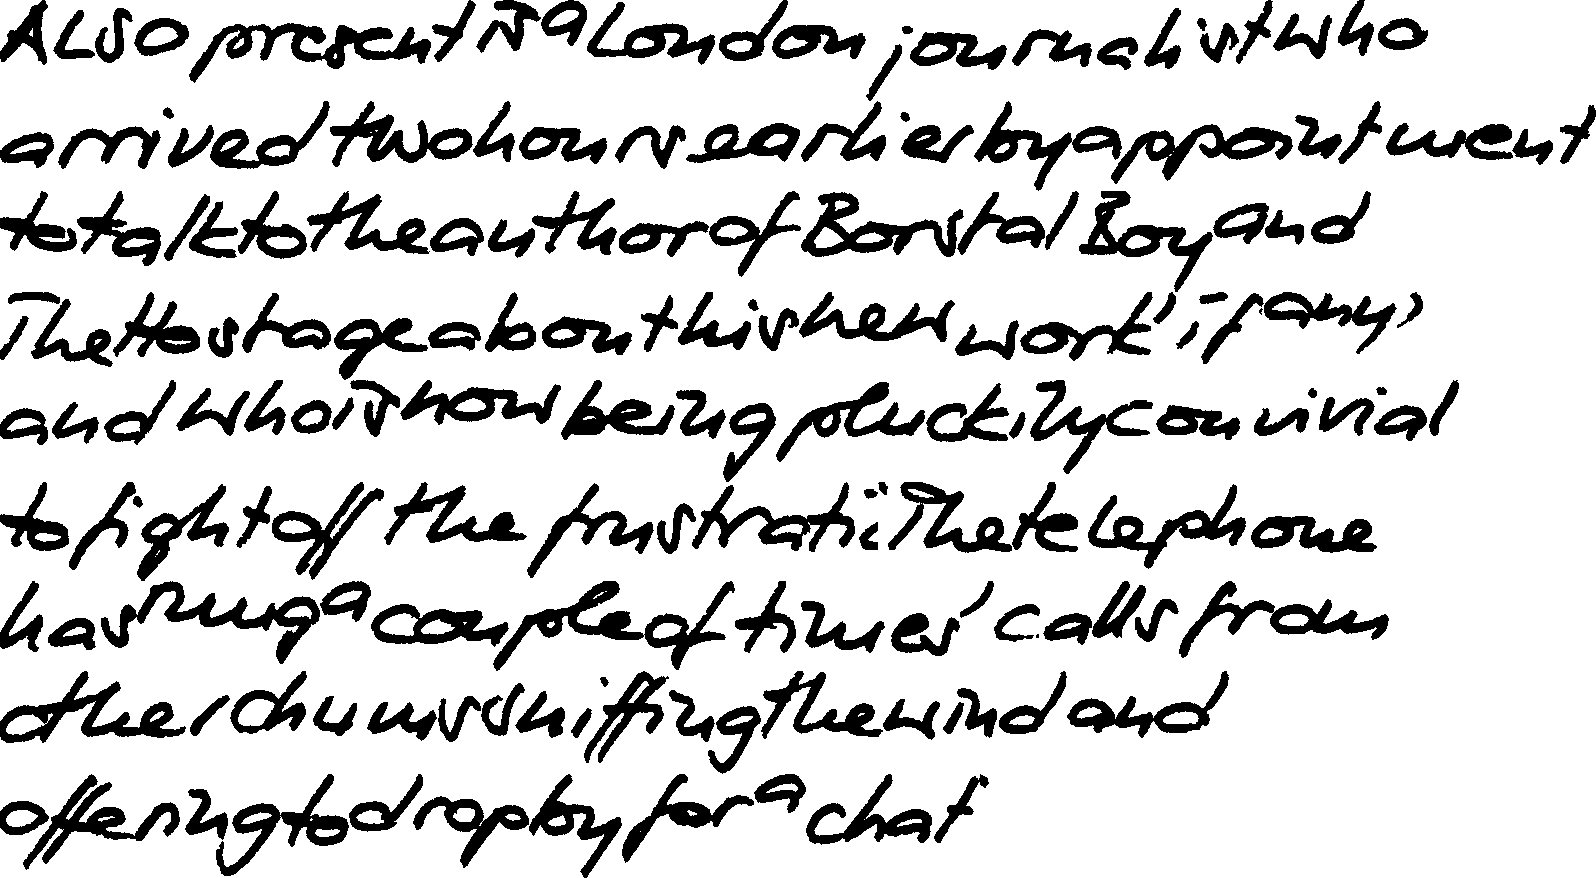 Also present is a London journalist who
arrived two hours earlier by appointment
to talk to the author of Borstal Boy and
The Hostage about his new work, if any,
and who is now being pluckily convivial
to fight off the The telephone
has rung a couple of times, calls from
other chums sniffing the wind and
offering to drop by for a chat